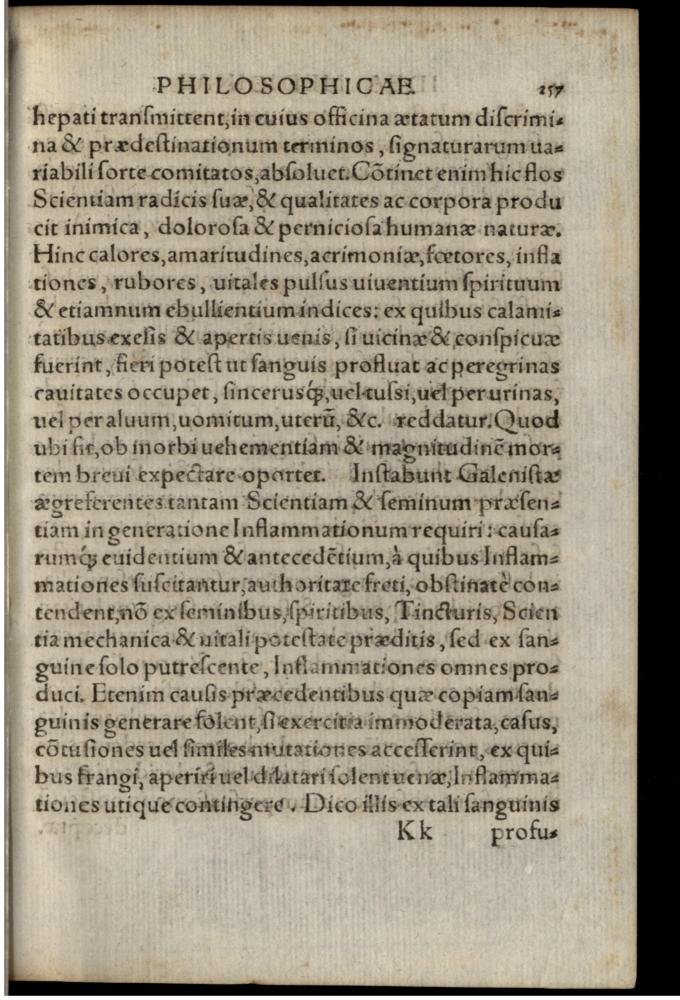 PHILOSOPHICAE. 257
hepati transmittent, in cuius officina ætatum discrimi-
na & prædestinationum terminos, signaturarum ua-
riabili sorte comitatos, absoluet. Cõtinet enim hic flos
Scientiam radicis suæ, & qualitates ac corpora produ
cit inimica, dolorosa & perniciosa humanæ naturæ.
Hinc calores, amaritudines, acrimoniæ, fœtores, infla
tiones, rubores, uitales pulsus uiuentium spirituum
& etiamnum ebullientium indices: ex quibus calami-
tatibus exesis & apertis uenis, si uicinæ & conspicuæ
fuerint, fieri potest ut sanguis profluat ac peregrinas
cauitates occupet, sincerusq́;, uel tussi, uel per urinas,
uel per aluum, uomitum, uterũ, &c. reddatur. Quod
ubi fit, ob morbi uehementiam & magnitudinẽ mor-
tem breui expectare oportet. Instabunt Galenistæ
ægre ferentes tantam Scientiam & seminum præsen-
tiam in generatione Inflammationum requiri: causa-
rumq́; euidentium & antecedẽtium, à quibus Inflam-
mationes suscitantur, authoritate freti, obstinatè con-
tendent, nõ ex seminibus, spiritibus, Tincturis, Scien
tia mechanica & uitali potestate præditis, sed ex san-
guine solo putrescente, Inflammationes omnes pro-
duci. Etenim causis præcedentibus quæ copiam san-
guinis generare solent, si exercitia immoderata, casus,
cõtusiones uel similes mutationes accesserint, ex qui-
bus frangi, aperiri uel dilatari solent uenæ, Inflamma-
tiones utique contingere. Dico illis ex tali sanguinis
Kk profu-